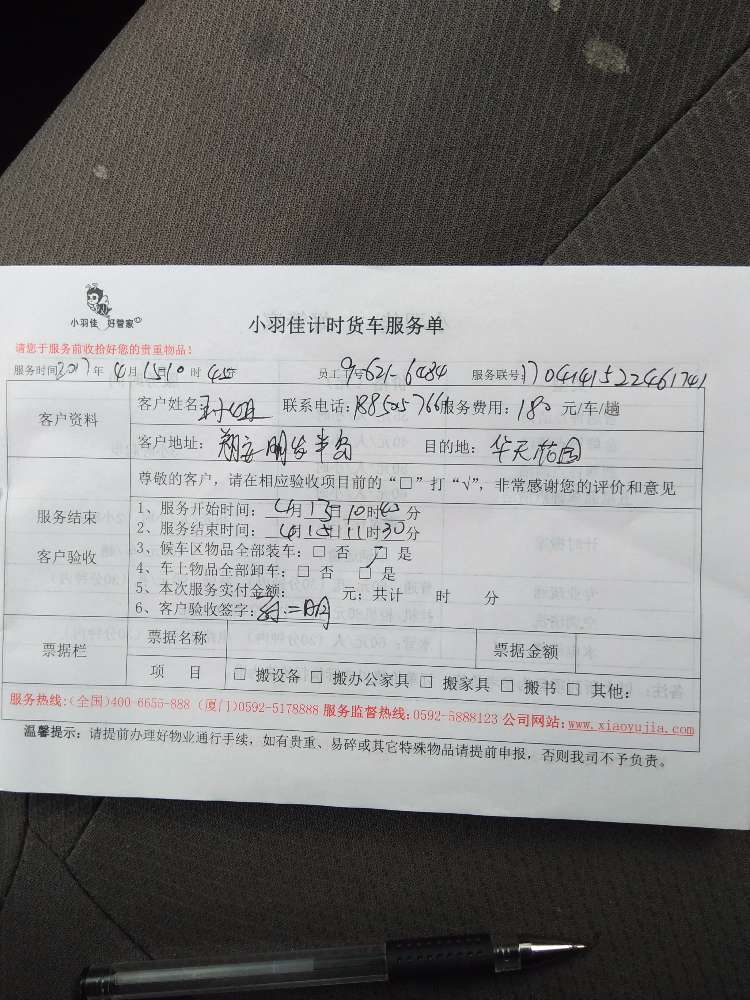 小羽佳 好管家
小羽佳计时货车服务单
请您于服务前收拾好您的贵重物品！
服务时间2017年4月15日10时45分 员工工号9-621-6484 服务联号:1704141522461741
客户资料
客户姓名: 联系电话: 服务费用：180元/车/趟
客户地址：翔安明发半岛 目的地：华天花园
服务结束
客户验收
尊敬的客户，请在相应验收项目前的“□”打“√”，非常感谢您的评价和意见
1、服务开始时间：4月15日10时45分
2、服务结束时间：4月15日11时30分
3、候车区物品全部装车：□ 否 □ 是
4、车上物品全部卸车：□ 否 □ 是
5、本次服务实付金额： 元；共计 时 分
6、客户验收签字：
票据栏
票据名称 票据金额
项 目 □ 搬设备 □ 搬办公家具 □ 搬家具 □ 搬书 □ 其他：
服务热线:(全国)400-6655-888 (厦门)0592-5178888 服务监督热线:0592-5888123 公司网站:www.xiaoyujia.com
温馨提示：请提前办理好物业通行手续，如有贵重、易碎或其它特殊物品请提前申报，否则我司不予负责。